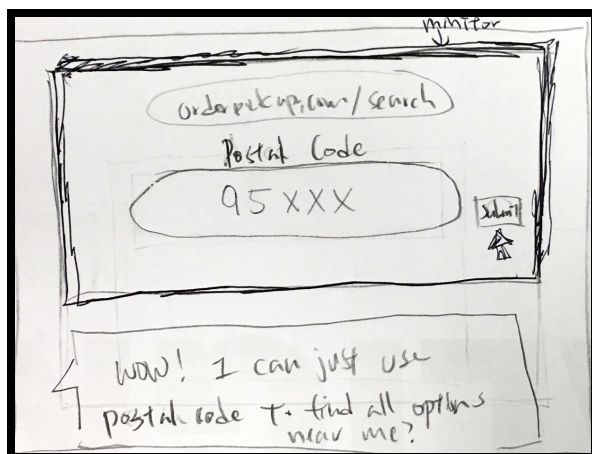 monitor
orderpickup.com/search
Postal Code
95XXX
Submit
WOW! I can just use
postal code to find all options
near me?